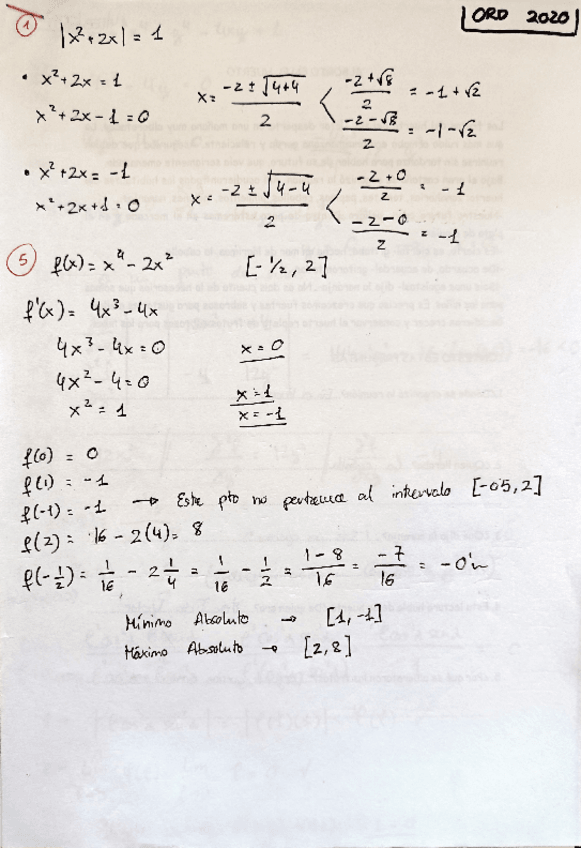 ORD 2020
① |x²+2x| = 1
• x²+2x = 1
x²+2x-1 = 0
x = (-2 ± √(4+4))/2 < (-2+√8)/2 = -1+√2
(-2-√8)/2 = -1-√2
• x²+2x = -1
x²+2x+1 = 0
x = (-2 ± √(4-4))/2 < (-2+0)/2 = -1
(-2-0)/2 = -1
⑤ f(x) = x⁴ - 2x² [-1/2, 2]
f'(x) = 4x³ - 4x
4x³ - 4x = 0 x = 0
4x² - 4 = 0 x = 1
x² = 1 x = -1
f(0) = 0
f(1) = -1
f(-1) = -1 → Este pto no pertenece al intervalo [-0'5, 2]
f(2) = 16 - 2(4) = 8
f(-1/2) = 1/16 - 2 1/4 = 1/16 - 1/2 = (1-8)/16 = -7/16 = -0'
Mínimo Absoluto → [1, -1]
Máximo Absoluto → [2, 8]